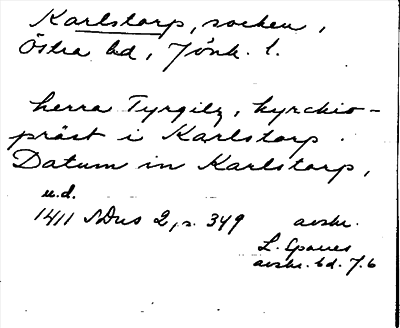 Karlstorp, socken,
Östra hd, Jönk. l.
herra Tyrgilz, kyrchio-
präst i Karlstorp.
Datum in Karlstorp,
u.d.
1411 SDns 2, s. 349 avskr.
L. Sparres
avskr. bd. 7.b